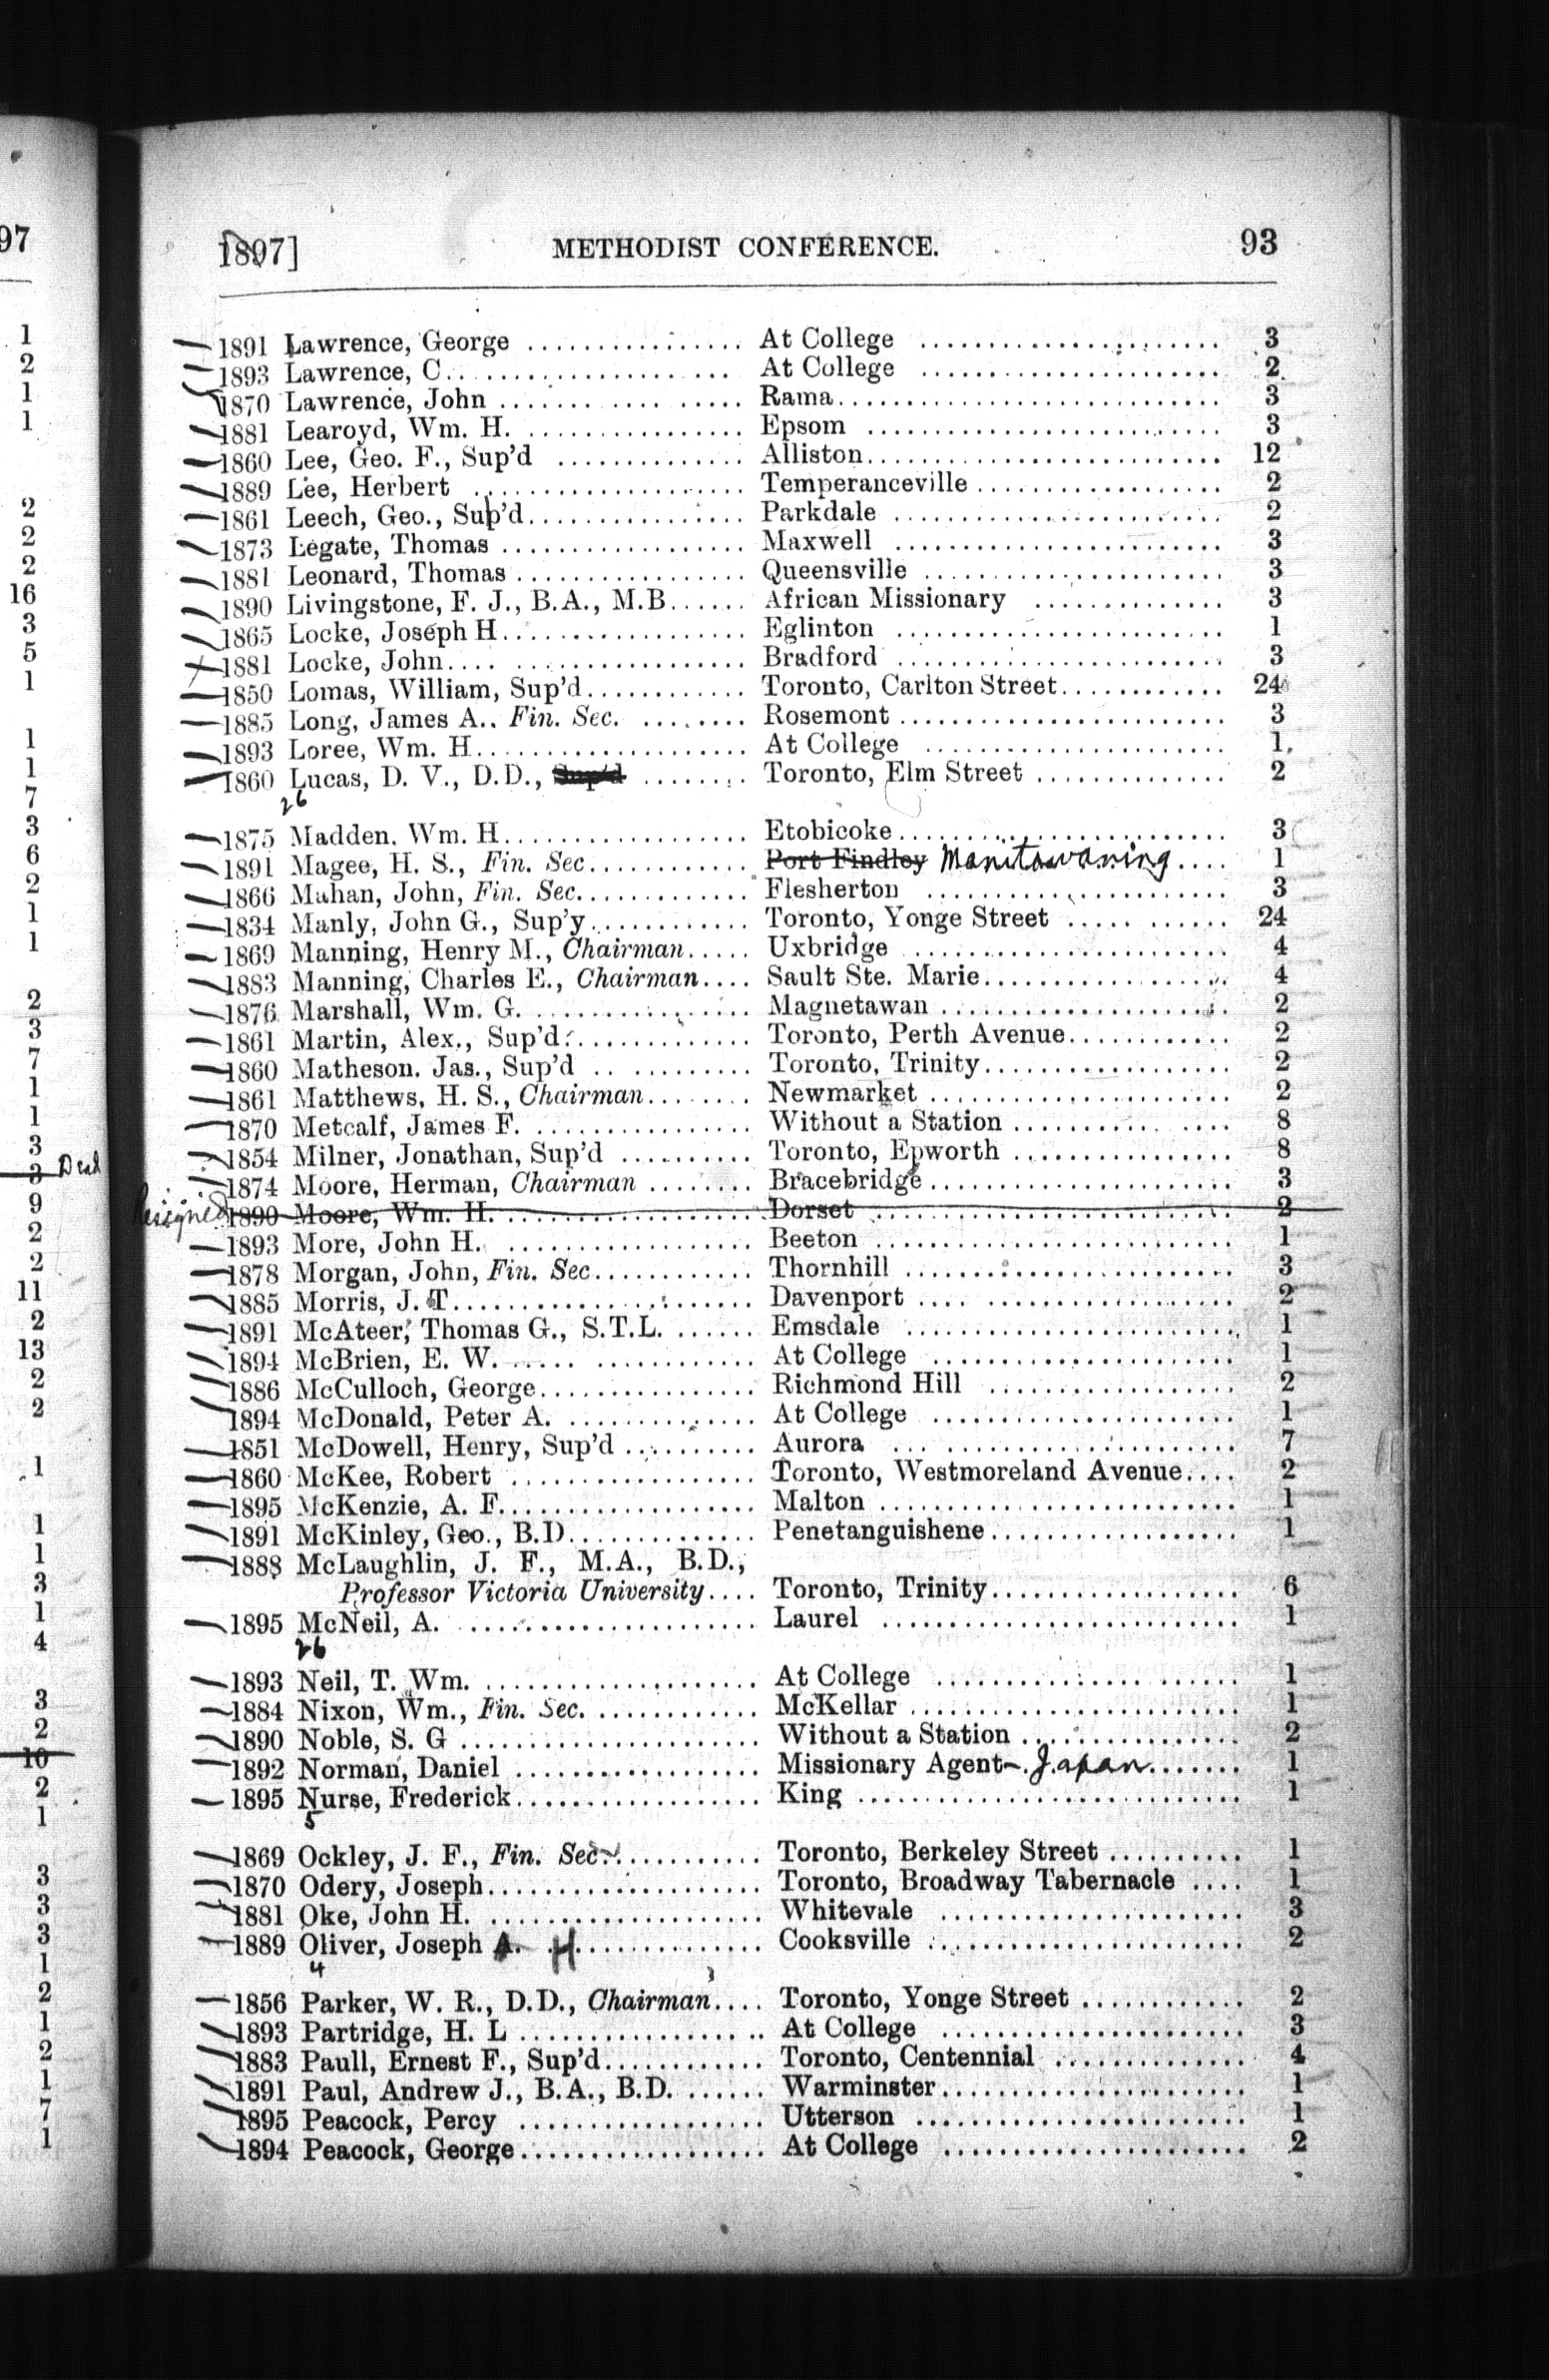 1897] METHODIST CONFERENCE. 93
1891 Lawrence, George ................ At College ...................... 3
1893 Lawrence, C. .................. At College ...................... 2
1870 Lawrence, John ................ Rama............................ 3
1881 Learoyd, Wm. H. ................ Epsom .......................... 3
1860 Lee, Geo. F., Sup'd .............. Alliston.......................... 12
1889 Lee, Herbert .................... Temperanceville.................. 2
1861 Leech, Geo., Sup'd................ Parkdale ........................ 2
1873 Legate, Thomas .................. Maxwell ........................ 3
1881 Leonard, Thomas................. Queensville ...................... 3
1890 Livingstone, F. J., B.A., M.B...... African Missionary .............. 3
1865 Locke, Joseph H.................. Eglinton ........................ 1
1881 Locke, John...................... Bradford ........................ 3
1850 Lomas, William, Sup'd............ Toronto, Carlton Street............ 24
1885 Long, James A.. Fin. Sec. ........ Rosemont........................ 3
1893 Loree, Wm. H.................... At College ...................... 1
1860 Lucas, D. V., D.D., Sup'd ........ Toronto, Elm Street .............. 2
26
1875 Madden. Wm. H.................. Etobicoke........................ 3
1891 Magee, H. S., Fin. Sec............ Port Findley Manitowaning.... 1
1866 Mahan, John, Fin. Sec............. Flesherton ...................... 3
1834 Manly, John G., Sup'y............ Toronto, Yonge Street ............ 24
1869 Manning, Henry M., Chairman..... Uxbridge ........................ 4
1883 Manning, Charles E., Chairman.... Sault Ste. Marie.................. 4
1876 Marshall, Wm. G. ................ Magnetawan ...................... 2
1861 Martin, Alex., Sup'd.............. Toronto, Perth Avenue............ 2
1860 Matheson. Jas., Sup'd ............ Toronto, Trinity.................. 2
1861 Matthews, H. S., Chairman........ Newmarket ...................... 2
1870 Metcalf, James F. ................ Without a Station ................ 8
1854 Milner, Jonathan, Sup'd .......... Toronto, Epworth ................ 8
1874 Moore, Herman, Chairman ........ Bracebridge...................... 3
Resigned 1890 Moore, Wm. H. .................. Dorset .......................... 2
1893 More, John H. .................. Beeton .......................... 1
1878 Morgan, John, Fin. Sec............ Thornhill ........................ 3
1885 Morris, J. T...................... Davenport ...................... 2
1891 McAteer, Thomas G., S.T.L. ...... Emsdale ........................ 1
1894 McBrien, E. W. .................. At College ...................... 1
1886 McCulloch, George................ Richmond Hill .................. 2
1894 McDonald, Peter A. .............. At College ...................... 1
1851 McDowell, Henry, Sup'd .......... Aurora .......................... 7
1860 McKee, Robert .................. Toronto, Westmoreland Avenue.... 2
1895 McKenzie, A. F................... Malton .......................... 1
1891 McKinley, Geo., B.D.............. Penetanguishene.................. 1
1888 McLaughlin, J. F., M.A., B.D.,
Professor Victoria University.... Toronto, Trinity.................. 6
1895 McNeil, A. ...................... Laurel .......................... 1
26
1893 Neil, T. Wm. .................... At College ...................... 1
1884 Nixon, Wm., Fin. Sec. ............ McKellar ........................ 1
1890 Noble, S. G ...................... Without a Station ................ 2
1892 Norman, Daniel .................. Missionary Agent-Japan....... 1
1895 Nurse, Frederick.................. King ............................ 1
5
1869 Ockley, J. F., Fin. Sec............. Toronto, Berkeley Street .......... 1
1870 Odery, Joseph.................... Toronto, Broadway Tabernacle .... 1
1881 Oke, John H. .................... Whitevale ...................... 3
1889 Oliver, Joseph A. H .............. Cooksville ........................ 2
4
1856 Parker, W. R., D.D., Chairman.... Toronto, Yonge Street ............ 2
1893 Partridge, H. L .................. At College ...................... 3
1883 Paull, Ernest F., Sup'd............ Toronto, Centennial .............. 4
1891 Paul, Andrew J., B.A., B.D. ...... Warminster...................... 1
1895 Peacock, Percy .................. Utterson ........................ 1
1894 Peacock, George.................. At College ...................... 2
97
1
2
1
1
2
2
2
16
3
5
1
1
1
7
3
6
2
1
1
2
3
7
1
1
3
3 Dead
9
2
2
11
2
13
2
2
1
1
1
3
1
4
3
2
10
2
1
3
3
3
1
2
1
2
1
7
1